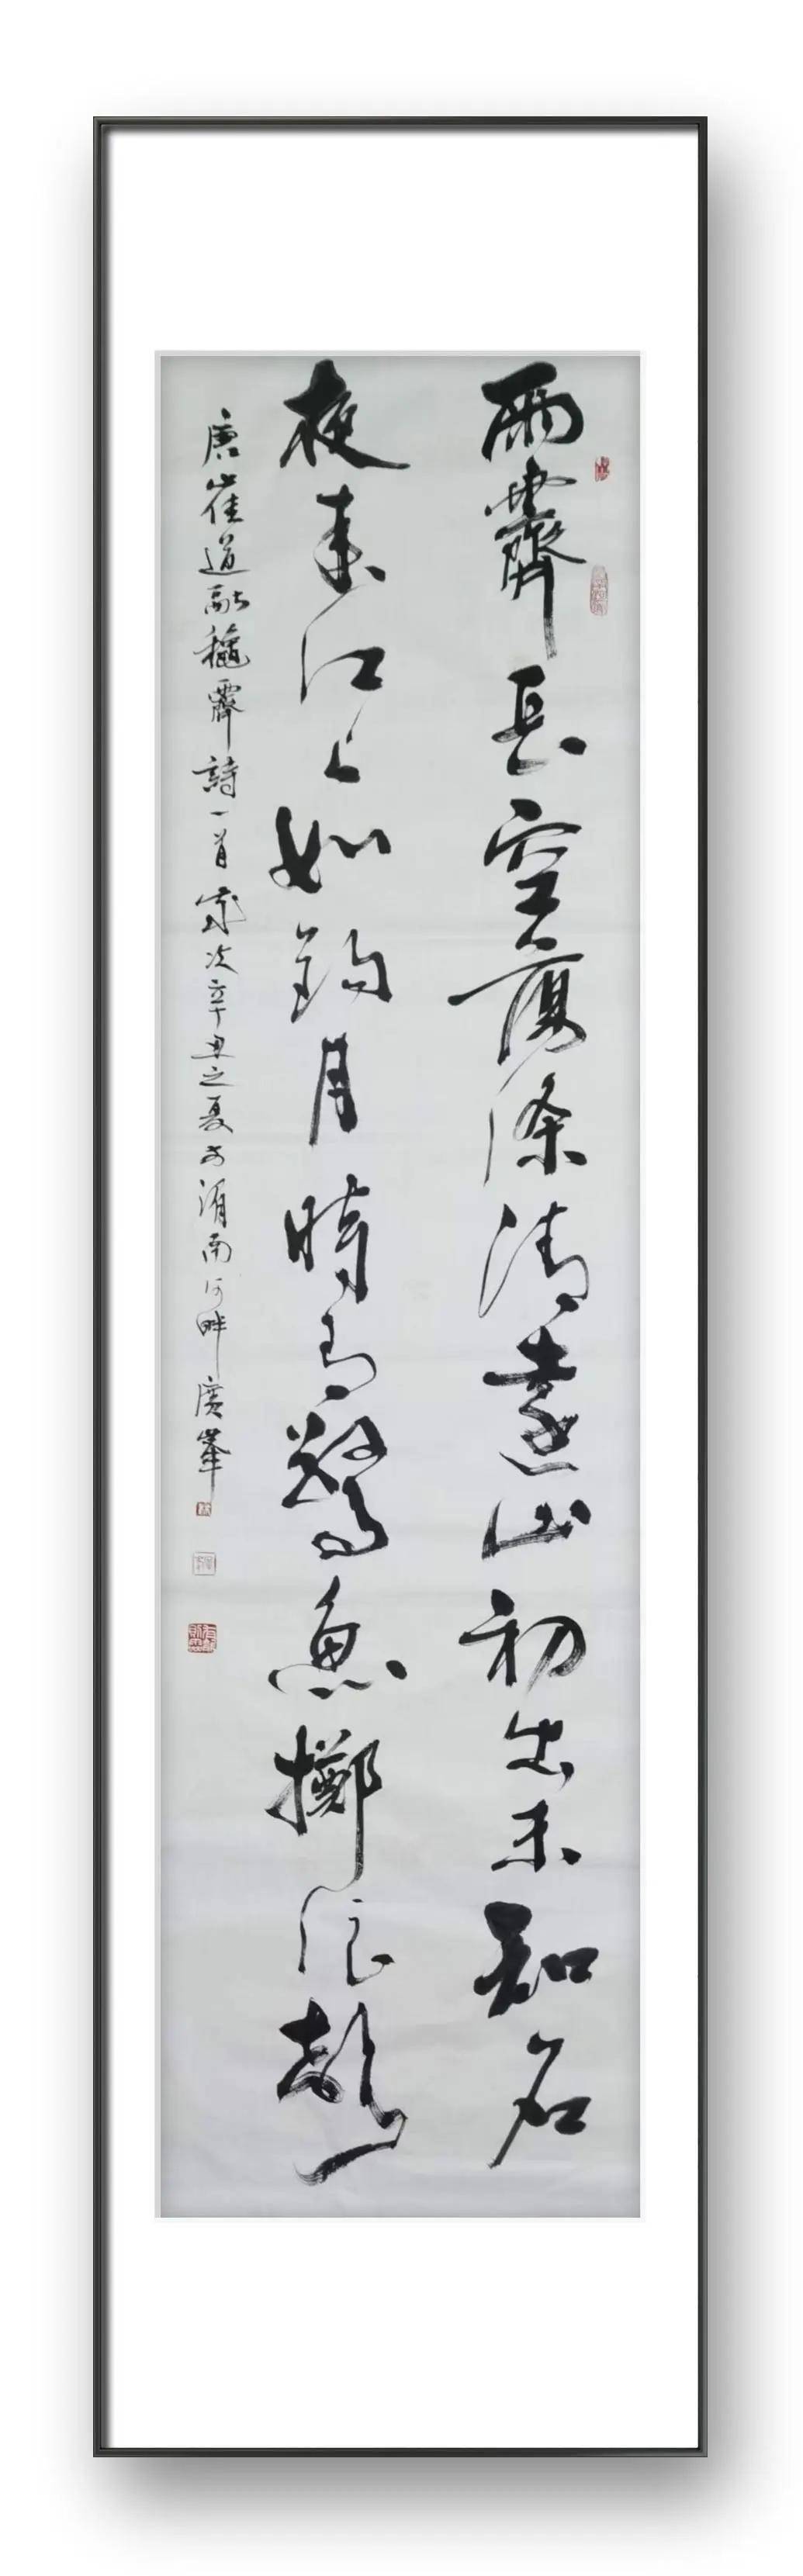 雨霽長空蕩滌清遠山初出未知名
夜來江上如鈎月時有驚魚擲浪聲
唐崔道融龝霽詩一首歲次辛丑之夏於渭南河畔廣峯